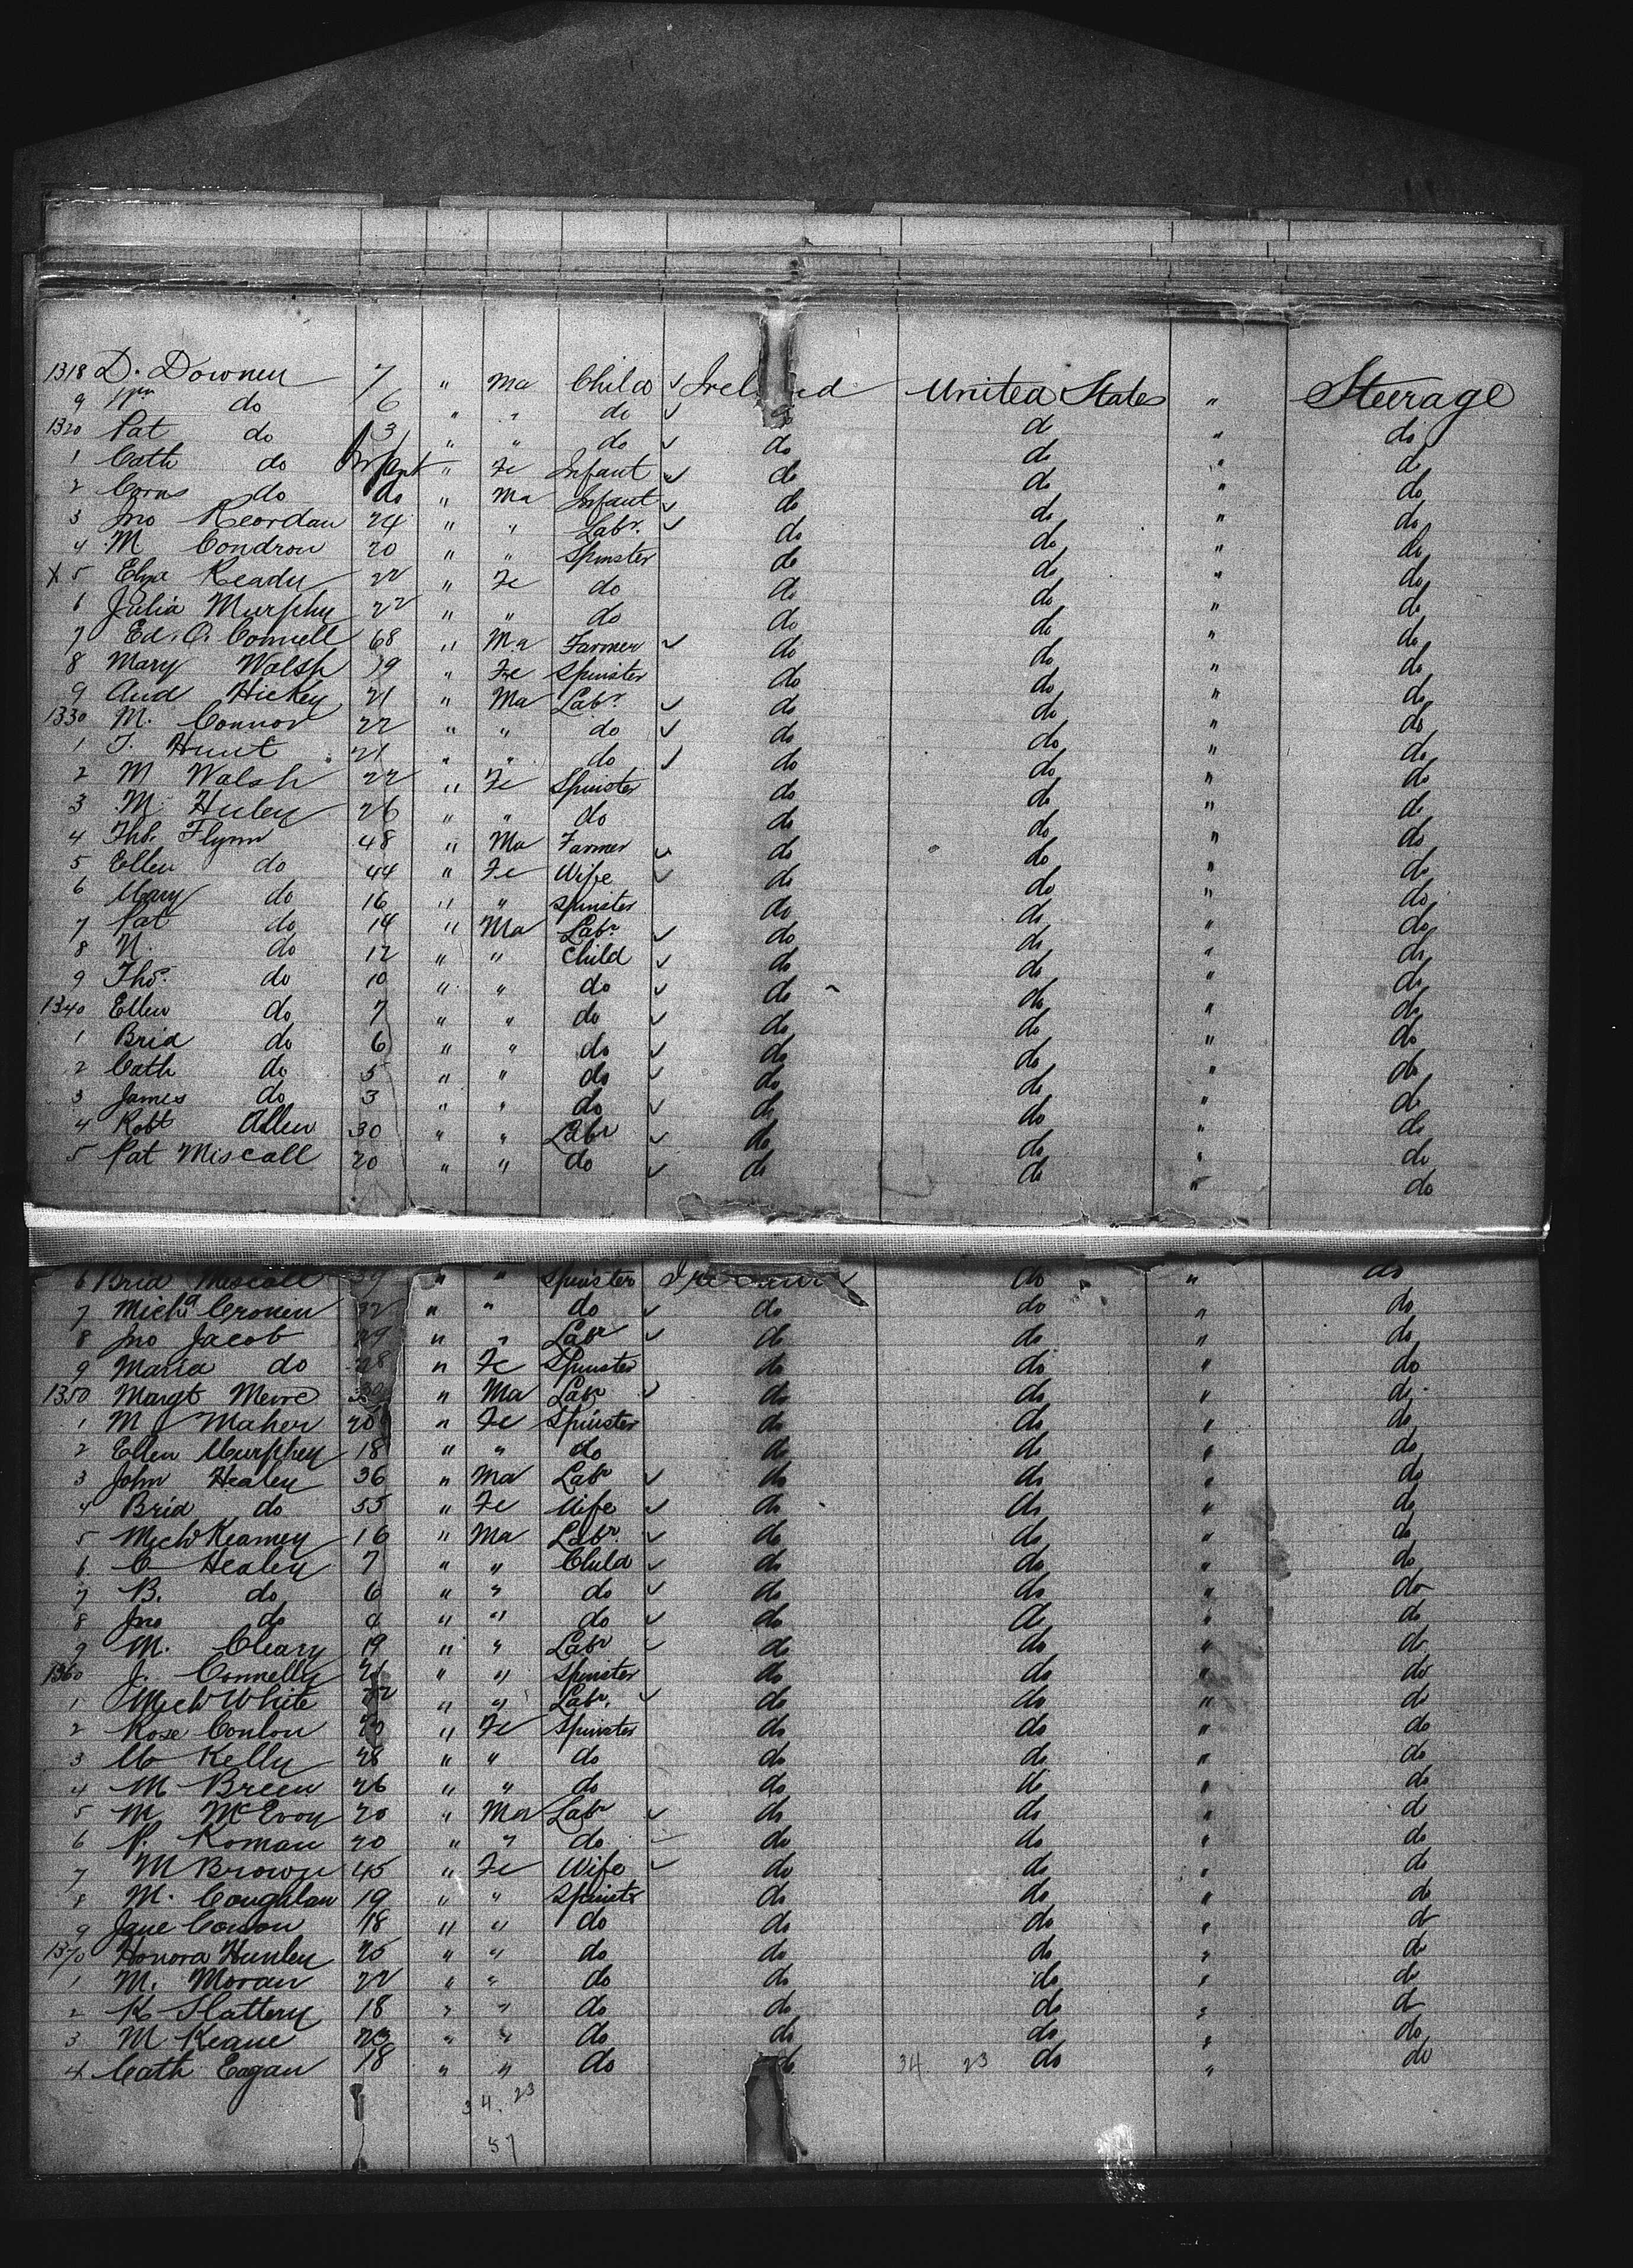 1318 D. Downey 7 " Ma Child ✓ Ireland United States " Steerage
9 Wm do 6 " " do ✓ do do " do
1320 Pat do 3 " " do ✓ do do " do
1 Cath do Infant " Fe Infant ✓ do do " do
2 Corns do do " Ma Infant ✓ do do " do
3 Jno Reordan 24 " " Labr. ✓ do do " do
4 M. Condron 20 " " Spinster do do " do
X 5 Eliza Ready 22 " Fe do do do " do
6 Julia Murphy 22 " " do do do " do
7 Ed. O. Connell 68 " Ma Farmer ✓ do do " do
8 Mary Walsh 19 " Fe Spinster do do " do
9 And Hickey 21 " Ma Labr. ✓ do do " do
1330 M. Connor 22 " " do ✓ do do " do
1 T. Hunt 21 " " do ✓ do do " do
2 M Walsh 22 " Fe Spinster do do " do
3 M. Huley 26 " " do do do " do
4 Tho. Flynn 48 " Ma Farmer ✓ do do " do
5 Ellen do 44 " Fe Wife ✓ do do " do
6 Mary do 16 " " Spinster do do " do
7 Pat do 14 " Ma Labr. ✓ do do " do
8 N. do 12 " " Child ✓ do do " do
9 Thos. do 10 " " do ✓ do do " do
1340 Ellen do 7 " " do ✓ do do " do
1 Brid do 6 " " do ✓ do do " do
2 Cath do 5 " " do ✓ do do " do
3 James do 3 " " do ✓ do do " do
4 Robt Allen 30 " " Labr ✓ do do " do
5 Pat Miscall 20 " " do ✓ do do " do
6 Brid Miscall " " Spinster do " do
7 Micha Cronin 22 " " do ✓ do do " do
8 Jno Jacob 29 " " Labr ✓ do do " do
9 Maria do 28 " Fe Spinster do do " do
1350 Margt 30 " Ma Labr ✓ do do " do
1 M Maher 20 " Fe Spinster do do " do
2 Ellen Murphy 18 " " do do do " do
3 John Healey 36 " Ma Labr ✓ do do " do
4 Brid do 35 " Fe Wife ✓ do do " do
5 Michl Kearney 16 " Ma Labr. ✓ do do " do
6 C Healey 7 " " Child ✓ do do " do
7 B. do 6 " " do ✓ do do " do
8 Jno do 4 " " do ✓ do do " do
9 M. Cleary 19 " " Labr ✓ do do " do
1360 J. Connelly 21 " " Spinster do do " do
1 Michl White 22 " " Labr. ✓ do do " do
2 Rose Conlon " Fe Spinster do do " do
3 M Kelly 28 " " do do do " do
4 M Breen 26 " " do do do " do
5 M. McEvoy 20 " Ma Labr ✓ do do " do
6 P. Roman 20 " " do ✓ do do " do
7 M Brown 45 " Fe Wife ✓ do do " do
8 M. Cougalan 19 " " Spinster do do " do
9 Jane Conon 18 " " do do do " do
1370 Honora Hunley 25 " " do do do " do
1 M. Moran 22 " " do do do " do
2 K Slattery 18 " " do do do " do
3 M Keane 23 " " do do do " do
4 Cath Eagan 18 " " do do 34. 23 do " do
34. 23
57